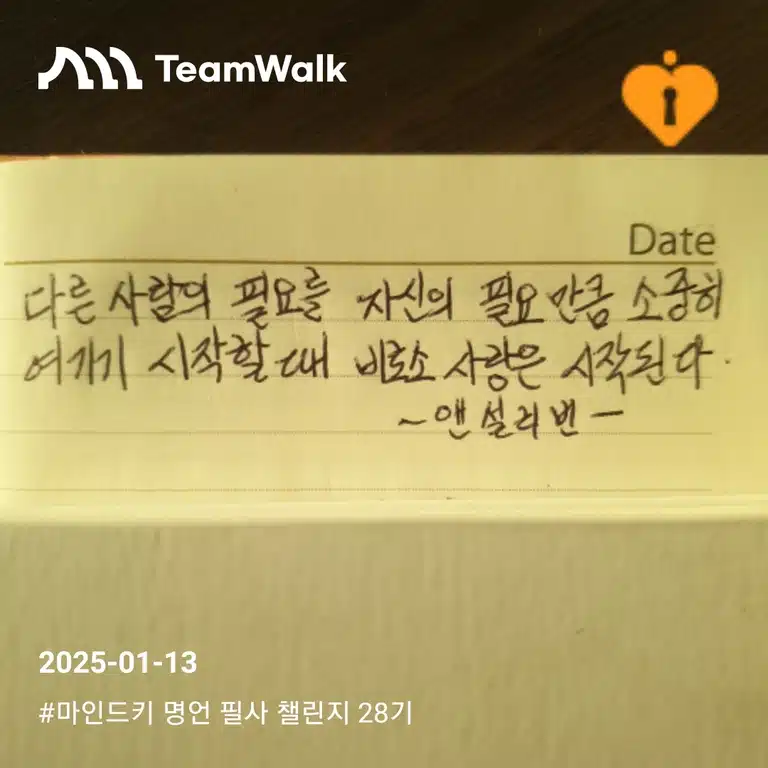 TeamWalk
Date
다른 사람의 필요를 자신의 필요만큼 소중히
여기기 시작할 때 비로소 사랑은 시작된다.
~앤 설리번-
2025-01-13
#마인드키 명언 필사 챌린지 28기